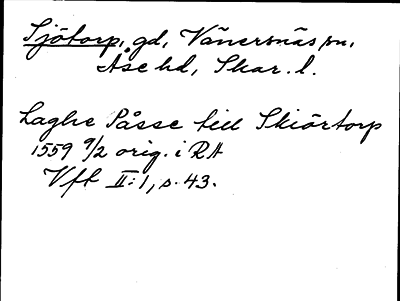 Sjötorp, gd, Vänersnäs sn,
Åse hd, Skar. l.
Laghe Påsse till Skiörtorp
1559 9/2 orig. i RA
Vft II:1, s. 43.